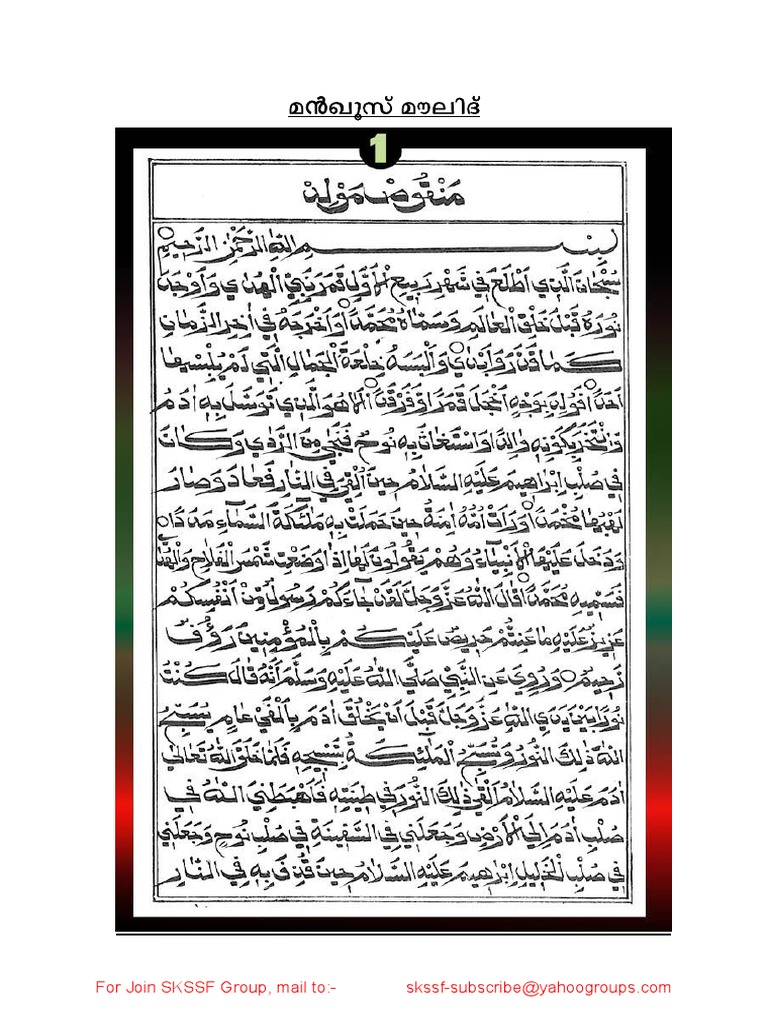 മൻഖൂസ് മൗലിദ്
1
مَنْقُوصْ مَوْلِدْ
بِسْــــــمِ اللّٰهِ الرَّحْمٰنِ الرَّحِيمِ
سُبْحَانَ الَّذِي أَطْلَعَ فِي شَهْرِ رَبِيعِ الْأَوَّلِ قَمَرَ نَبِيِّ الْهُدٰي وَأَوْجَدَ
نُورَهُ قَبْلَ خَلْقِ الْعَالَمِ وَسَمَّاهُ مُحَمَّدًا وَأَخْرَجَهُ فِي أٰخِرِ الزَّمَانِ
كَمَا قَدَّرَ وَأَبْدٰي وَأَلْبَسَهُ خِلْعَةَ الْجَمَالِ الَّتِي لَمْ يُلْبِسْهَا
أَحَدًا وَوُلِدَ بِوَجْهٍ أَخْجَلَ قَمَرًا وَفَرْقَدًا أَلَا هُوَ الَّذِي تَوَسَّلَ بِهِ أٰدَمُ
وَافْتَخَرَ بِكَوْنِهِ وَالِدًا وَاسْتَغَاثَ بِهِ نُوحٌ فَنَجٰي مِنَ الرَّدٰي وَكَانَ
فِي صُلْبِ إِبْرَاهِيمَ عَلَيْهِ السَّلَامُ حِينَ أُلْقِيَ فِي النَّارِ فَعَادَ وَصَارَ
لَهَبُهَا مُخْمَدًا وَرَأَتْ أُمُّهُ أٰمِنَةُ حِينَ حَمَلَتْ بِهِ مَلٰئِكَةَ السَّمَاءِ مَدَدًا
وَدَخَلَ عَلَيْهَا الْأَنْبِيَاءُ وَهُمْ يَقُولُونَ لَهَا إِذَا وَضَعْتِ شَمْسَ الْفَلَاحِ وَالْهُدٰي
فَسَمِّيهِ مُحَمَّدًا قَالَ اللّٰهُ عَزَّ وَجَلَّ لَقَدْ جَاءَكُمْ رَسُولٌ مِّنْ أَنْفُسِكُمْ
عَزِيزٌ عَلَيْهِ مَا عَنِتُّمْ حَرِيصٌ عَلَيْكُمْ بِالْمُؤْمِنِينَ رَؤُفٌ
رَحِيمٌ وَرُوِيَ عَنِ النَّبِيِّ صَلَّي اللّٰهُ عَلَيْهِ وَسَلَّمَ أَنَّهُ قَالَ كُنْتُ
نُورًا بَيْنَ يَدَيِ اللّٰهِ عَزَّ وَجَلَّ قَبْلَ أَنْ يَخْلُقَ أٰدَمَ بِأَلْفَيْ عَامٍ يُسَبِّحُ
اللّٰهَ ذٰلِكَ النُّورُ وَتُسَبِّحُ الْمَلٰئِكَةُ بِتَسْبِيحِهِ فَلَمَّا خَلَقَ اللّٰهُ تَعَالٰي
أٰدَمَ عَلَيْهِ السَّلَامُ أَلْقٰي ذٰلِكَ النُّورَ فِي طِينَتِهِ فَأَهْبَطَنِي اللّٰهُ فِي
صُلْبِ أٰدَمَ إِلَي الْأَرْضِ وَجَعَلَنِي فِي السَّفِينَةِ فِي صُلْبِ نُوحٍ وَجَعَلَنِي
فِي صُلْبِ الْخَلِيلِ إِبْرَاهِيمَ عَلَيْهِ السَّلَامُ حِينَ قُذِفَ بِهِ فِي النَّارِ
For Join SKSSF Group, mail to:- skssf-subscribe@yahoogroups.com